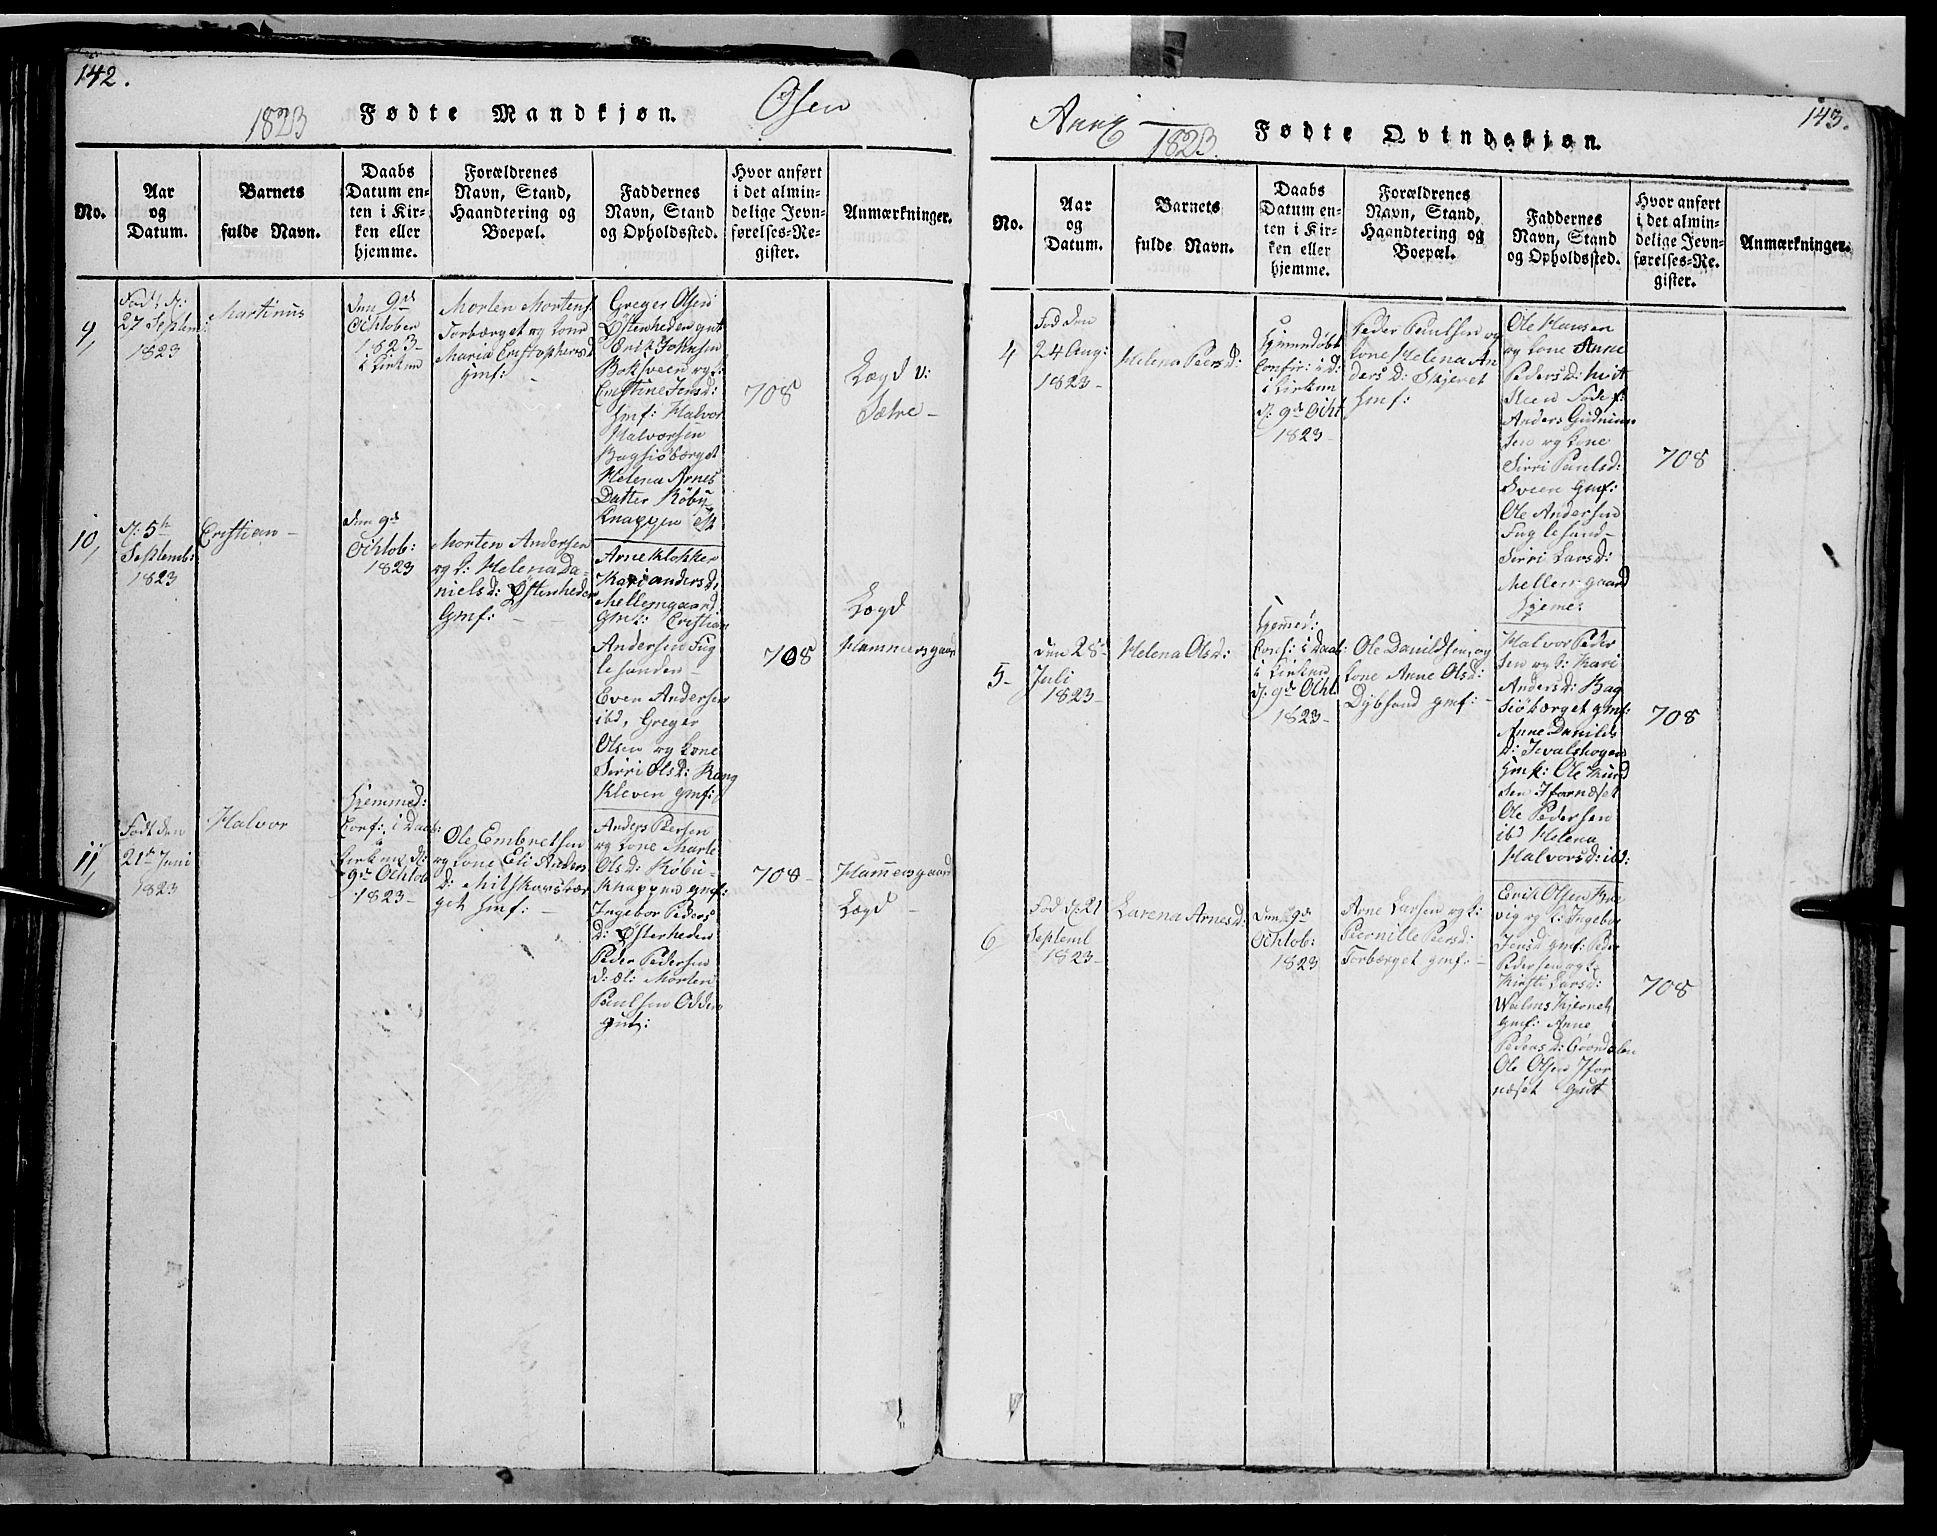 142.
1823 Fødte Mandkjøn. Osen
No.
Aar
og
Datum.
Barnets
fulde Navn.
Daabs
Datum en-
ten i Kir-
ken eller
hjemme.
Forældrenes
Navn, Stand,
Haandtering og
Boepæl.
Faddernes
Navn, Stand
og Opholdssted.
Hvor anført
i det almin-
delige Jevn-
førelses-Re-
gister.
Anmærkninger.
9,
Fød d:
27 Septem:
1823
Martinus
den 9de
Ochtober
1823-
i Kirken
Morten Mortens:
Torbærget og kone
Maria Cristophersd
gmf: -
Greger Olsen
Østenheden gmt
Erik Johnsen
Boksveen og k:
Cristine Jensd:
gmf: Halvor
Halvorsen
Bagsiöbærget
Helena Arnes
Datter Röbu
Knappen
708
Lægd v:
Sætre -
10,
d: 5te
Septemb:
1823
Cristian -
den 9de
Ochtob:
1823
Morten Andersen
og k: Helena Da-
nielsd: Østenheden
gmf: -
Arne Klokker
Kari andersd,
Mellemgaard
gmk: Cristian
Andersen Fug
lesanden -
Even Andersen
ibd, Greger
Olsen og kone
Sirri Olsd: Rang
Kleven gmf:
708
Lægd
Hammersgaard
11,
Født den
21de Juni
1823
Halvor
Hjemmed:
Conf: i Daab:
i
Kirken d:
9de Ochtob
1823 -
Ole Embretsen
og kone Eli Anders
d: Mitskovsbær
get gmf: -
Anders Peersen
og kone Marte
Olsd: Röbu-
Knappen gmf:
Ingebor Peders
d: Østerheden
Peder Pedersen
Morten
Paulsen Odden
gmt:
708 -
Hammersgaard
Lægd -
143.
Anne 1823. Fødte Qvindekjøn.
No.
Aar
og
Datum.
Barnets
fulde Navn.
Daabs
Datum en-
ten i Kir-
ken eller
hjemme.
Forældrenes
Navn, Stand,
Haandtering og
Boepæl.
Faddernes
Navn, Stand
og Opholdssted.
Hvor anført
i det almin-
delige Jevn-
førelses-Re-
gister.
Anmærkninger.
4
Fød den
24 Aug:
1823 -
Helena Peersd:
Hjemmedöbt
Confir: i d:
i Kirken
d: 9de Ocht
1823 -
Peder Paulsen og
kone Helena An
dersd: Skjeret
gmf:
Ole Hansen
og kone Anne
Pedersd: hvit
Steen
Anders Gudmun
sen og kone
Sirri Paulsd:
Sveen gmf:
Ole Andersen
Fuglesand -
Sirri Larsd:
Mellemgaard
708
5-
den 28de
Juli
1823 -
Helena Olsd:
Hjemmed:
Conf: i Daab:
i Kirken
d: 9de Ocht
1823 -
Ole Danildsen, og
kone Anne Olsd:
Dybsand gmf: -
Halvor Peder
sen og k: Kari
Andersd: Bag
Siöbærget gmf:
Anne Danilds
gmk: Ole Knud
sen Ifarnæset
Ole Pedersen
ibd Helena
Halvorsd: ibd:
708
6
Fød d: 21
Septemb
1823 -
Larena Arnesd:
den 9de
Ochtob:
1823
Arne Larsen og k:
Peernille Peersd:
Torbærget gmf: -
Erik Olsen
vig og k: Ingebor
Jensd gmf: Peder
Pedersen og k:
Kirsti Larsd:
gmf: Anne
Pedersd: Grøndalen
Ole Olsen Ifar
næset gmt
708